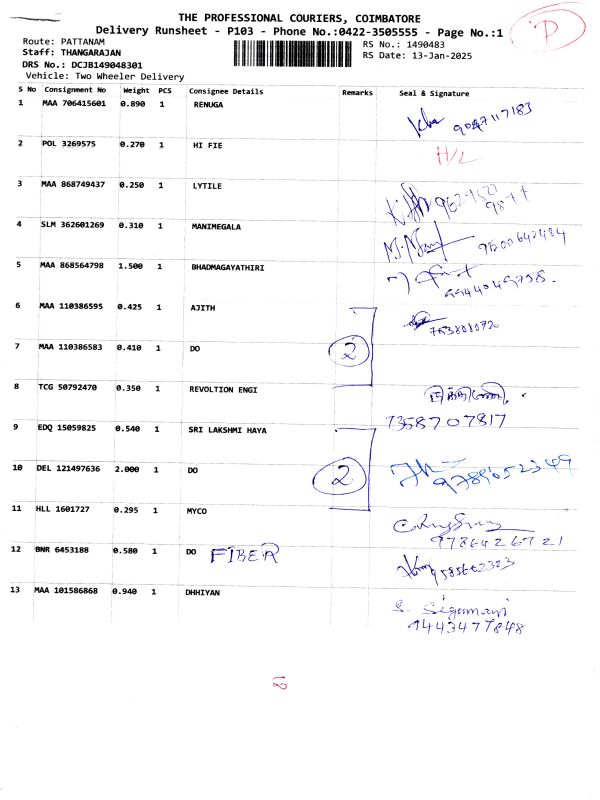 THE PROFESSIONAL COURIERS, COIMBATORE
Delivery Runsheet - P103 - Phone No.:0422-3505555 - Page No.:1
P
Route: PATTANAM
RS No.: 1490483
Staff: THANGARAJAN
RS Date: 13-Jan-2025
DRS No.: DCJB149048301
Vehicle: Two Wheeler Delivery
S No Consignment No Weight PCS Consignee Details Remarks Seal & Signature
1 MAA 706415601 0.890 1 RENUGA
2 POL 3269575 0.270 1 HI FIE H/L
3 MAA 868749437 0.250 1 LYTILE
4 SLM 362601269 0.310 1 MANIMEGALA
5 MAA 868564798 1.500 1 BHADMAGAYATHIRI
6 MAA 110386595 0.425 1 AJITH
7 MAA 110386583 0.410 1 DO 2
8 TCG 50792470 0.350 1 REVOLTION ENGI
7358707817
9 EDQ 15059825 0.540 1 SRI LAKSHMI HAYA
10 DEL 121497636 2.000 1 DO 2
11 HLL 1601727 0.295 1 MYCO
9786426721
12 BNR 6453188 0.580 1 DO FIBER
13 MAA 101586868 0.940 1 DHHIYAN
S. Sigamani
9443477848